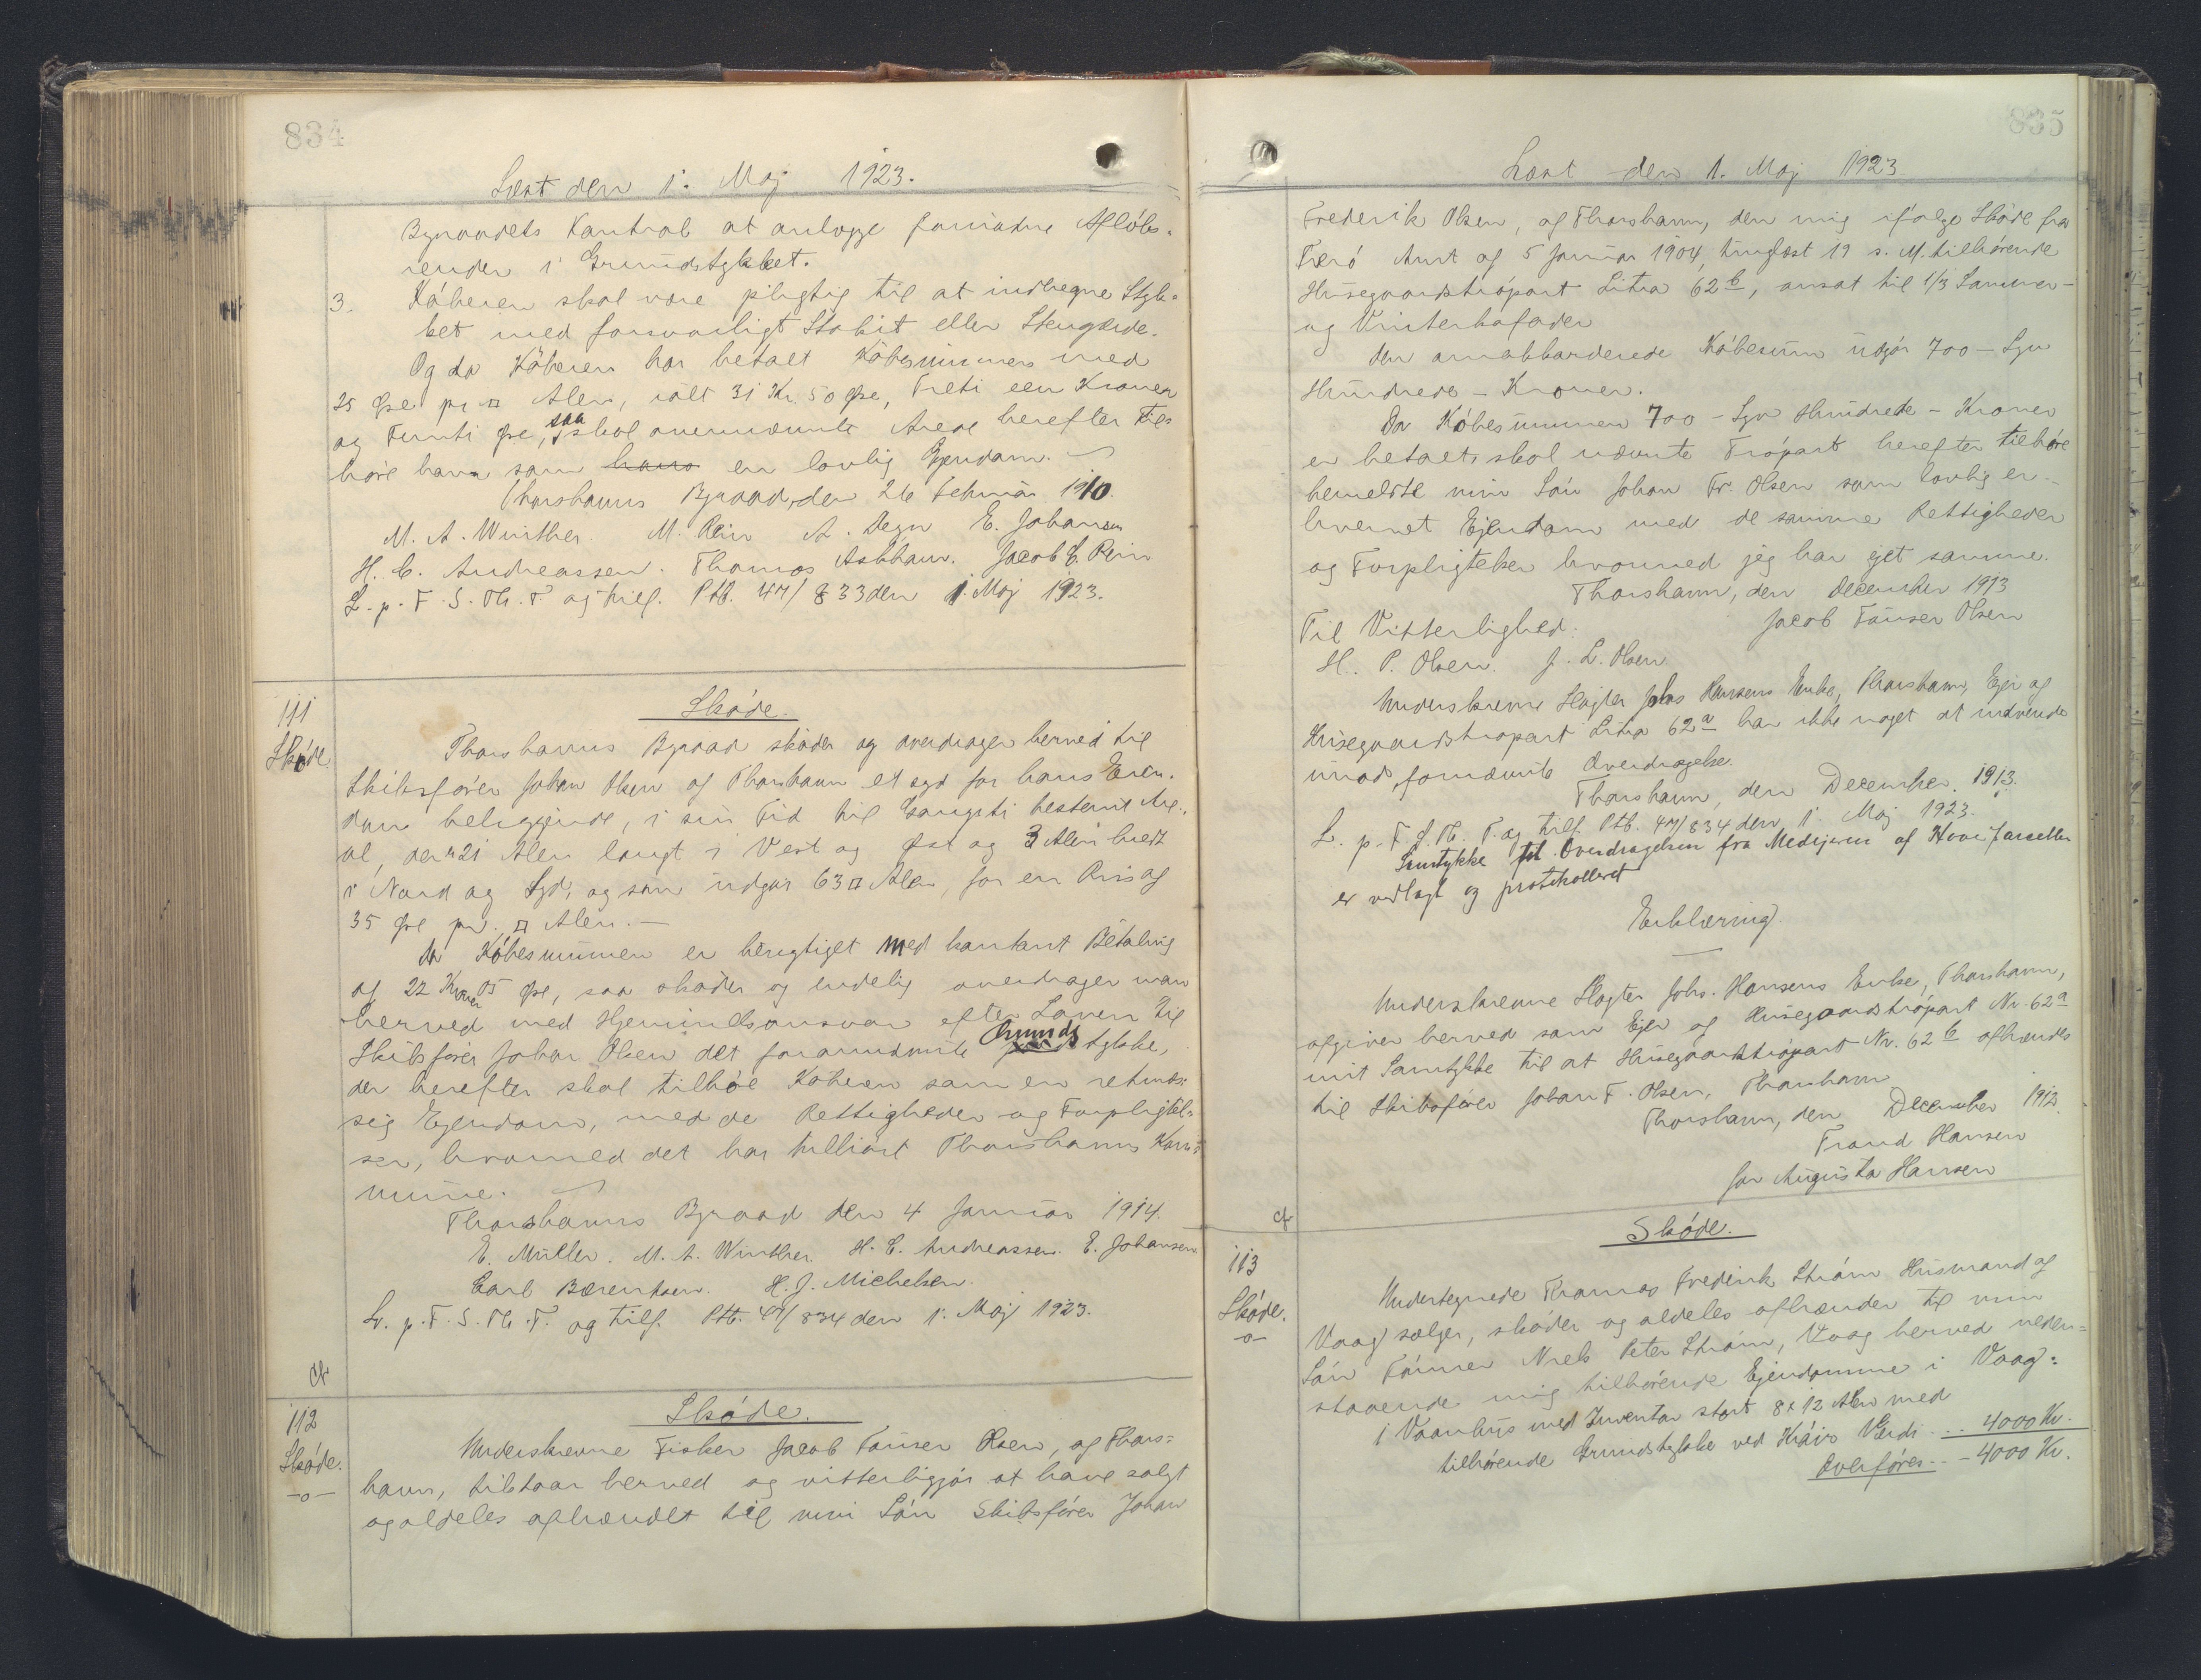 834
Læst den 1. Maj 1923.
Byraadets Kontrol at anlægge fornødne Afløbs-
render i Grundstykket.
3. Køberen skal være pligtig til at indhegne Styk-
ket med forsvarligt Stakit eller Stengærde.
Og da Køberen har betalt Købesummen med
25 Øre pr □ Alen, ialt 31 Kr. 50 Øre, Treti een Kroner
og Femti Øre, saa skal ovennævnte Areal herefter til-
høre ham som hans en lovlig Ejendom.
Thorshavns Byraad, den 26 Februar 1910.
M. A. Winther. M. Rein A. Degn E. Johansen
H. C. Andreassen. Thomas Askham. Jacob E. Rein
L. p. F. S. Th. T. og tilf. Ptb. 47/833 den 1. Maj 1923.
111
Skøde.
Skøde.
Thorshavns Byraad skøder og overdrager herved til
Skibsfører Johan Olsen af Thorshavn et syd for hans Eien-
dom beliggende, i sin Tid til Gangsti bestemt Are-
al, der er 21 Alen langt i Vest og Øst og 3 Alen bredt
i Nord og Syd, og som udgør 63 □ Alen, for en Pris af
35 Øre pr. □ Alen.—
Da Købesummen er berigtiget med kontant Betaling
af 22 Kroner 05 Øre, saa skøder og endelig overdrager man
herved med Hjemmelsansvar efter Loven til
Skibsfører Johan Olsen det forannævnte Grundstykke,
der herefter skal tilhøre Køberen som en retmæs-
sig Ejendom, med de Rettigheder og Forpligtel-
ser, hvormed det har tilhørt Thorshavns Kom-
mune.
Thorshavns Byraad den 4 Januar 1914.
E. Müller. M. A. Winther. H. C. Andreassen. E. Johansen.
Carl Bærentsen. H. J. Michelsen.
L. p. F. S. Th. T. og tilf. Ptb. 47/834 den 1. Maj 1923.
cf
112
Skøde.
—o—
Skøde.
Underskrevne Fisker Jacob Fauser Olsen, af Thors-
havn, tilstaar herved og vitterliggjør at have solgt
og aldeles afhændet til min Søn Skibsfører Johan
835
Læst den 1. Maj 1923
Frederik Olsen, af Thorshavn, den mig ifølge Skøde fra
Færø Amt af 5 Januar 1904, tinglæst 19 s. M. tilhørende
Husegaardstrøpart Litra 62 b, ansat til 1/3 Sommer-
og Vinterhafoder
Den omakkorderede Købesum udgør 700 – Syv
Hundrede – Kroner.
Da Købesummen 700 – Syv Hundrede – Kroner
er betalt, skal nævnte Trøpart herefter tilhøre
bemeldte min Søn Johan Fr. Olsen som lovlig er-
hvervet Ejendom med de samme Rettigheder
og Forpligtelser hvormed jeg har ejet samme.
Thorshavn, den December 1913
Til Vitterlighed: Jacob Fauser Olsen
H. P. Olsen. J. L. Olsen
Underskrevne Slagter Johs Hansens Enke, Thorshavn, Ejer af
Husegaardstrøpart Litra 62 a har ikke noget at indvende
imod fornævnte Overdragelse.
Thorshavn, den December. 1913.
L. p. F. S. Th. T. og tilf. Ptb. 47/834 den 1. Maj 1923.
Samtykke til Overdragelsen fra Medejeren af Hovedparcellen
er vedlagt og protokolleret
Erklæring.
Underskrevne Slagter Johs. Hansens Enke, Thorshavn,
afgiver herved som Ejer af Husegaardstrøpart Nr. 62 a
mit Samtykke til at Husegaardstrøpart Nr. 62 b afhændes
til Skibsfører Johan F. Olsen, Thorshavn
Thorshavn, den December 1913.
Trond Hansen
for Augusta Hansen
cf
113
Skøde.
—o—
Skøde.
Undertegnede Thomas Frederik Strøm Husmand af
Vaag sælger, skøder og aldeles afhænder til min
Søn Tømrer Niels Peter Strøm, Vaag herved neden-
staaende mig tilhørende Ejendomme i Vaag:
1 Vaanhus med Inventar stort 8 x 12 Alen med
tilhørende Grundstykke ved Værdi ... 4000 Kr.
Overføres -- - 4000 Kr.